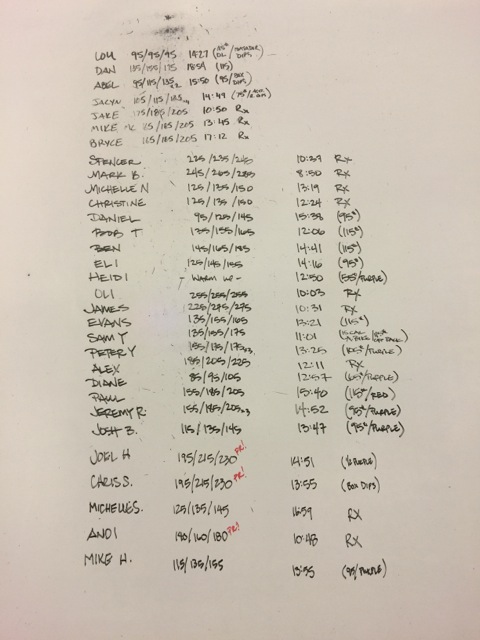 LOU 95/95/95 14:27 (75# DL/ DIPS)
DAN 135/155/175 18:59 (115)
ABEL 95/115/135 x2 15:50 (95/BOX DIPS)
JACYN 105/115/125 14:49 (75#
JAKE 175/185/205 10:50 RX
MIKE MC 165/185/205 13:45 RX
BRYCE 165/185/205 17:12 RX
SPENCER 225/235/245 10:39 RX
MARK B. 245/265/285 8:50 RX
MICHELLE N 125/135/150 13:19 RX
CHRISTINE 125/135/150 12:24 RX
DANIEL 95/125/145 15:38 (95#)
BOB T 135/155/165 12:06 (115#)
BEN 145/165/185 14:41 (115#)
ELI 125/145/155 14:16 (95#)
HEIDI - WARM UP - 12:50 (55#/PURPLE)
OLI 255/255/255 10:03 RX
JAMES 225/275/275 10:31 RX
EVANS 135/155/165 13:21 (115#)
SAM Y 135/155/175 11:01 (15 CAL
PETER Y 155/135/175x3 13:25 (105#/PURPLE)
ALEX 185/205/225 12:11 RX
DIANE 85/95/105 12:57 (65#/PURPLE)
PAUL 155/185/205 15:40 (115#/RED)
JEREMY R. 155/185/205x3 14:52 (95#/PURPLE)
JOSH B. 115/135/145 13:47 (95#/PURPLE)
JOEL H 195/215/230 PR! 14:51 (½ PURPLE)
CHRIS S. 195/215/230 PR! 13:55 (BOX DIPS)
MICHELLE S. 125/135/145 16:59 RX
ANDI 140/160/180 PR! 10:48 RX
MIKE H. 115/135/155 13:55 (95/PURPLE)